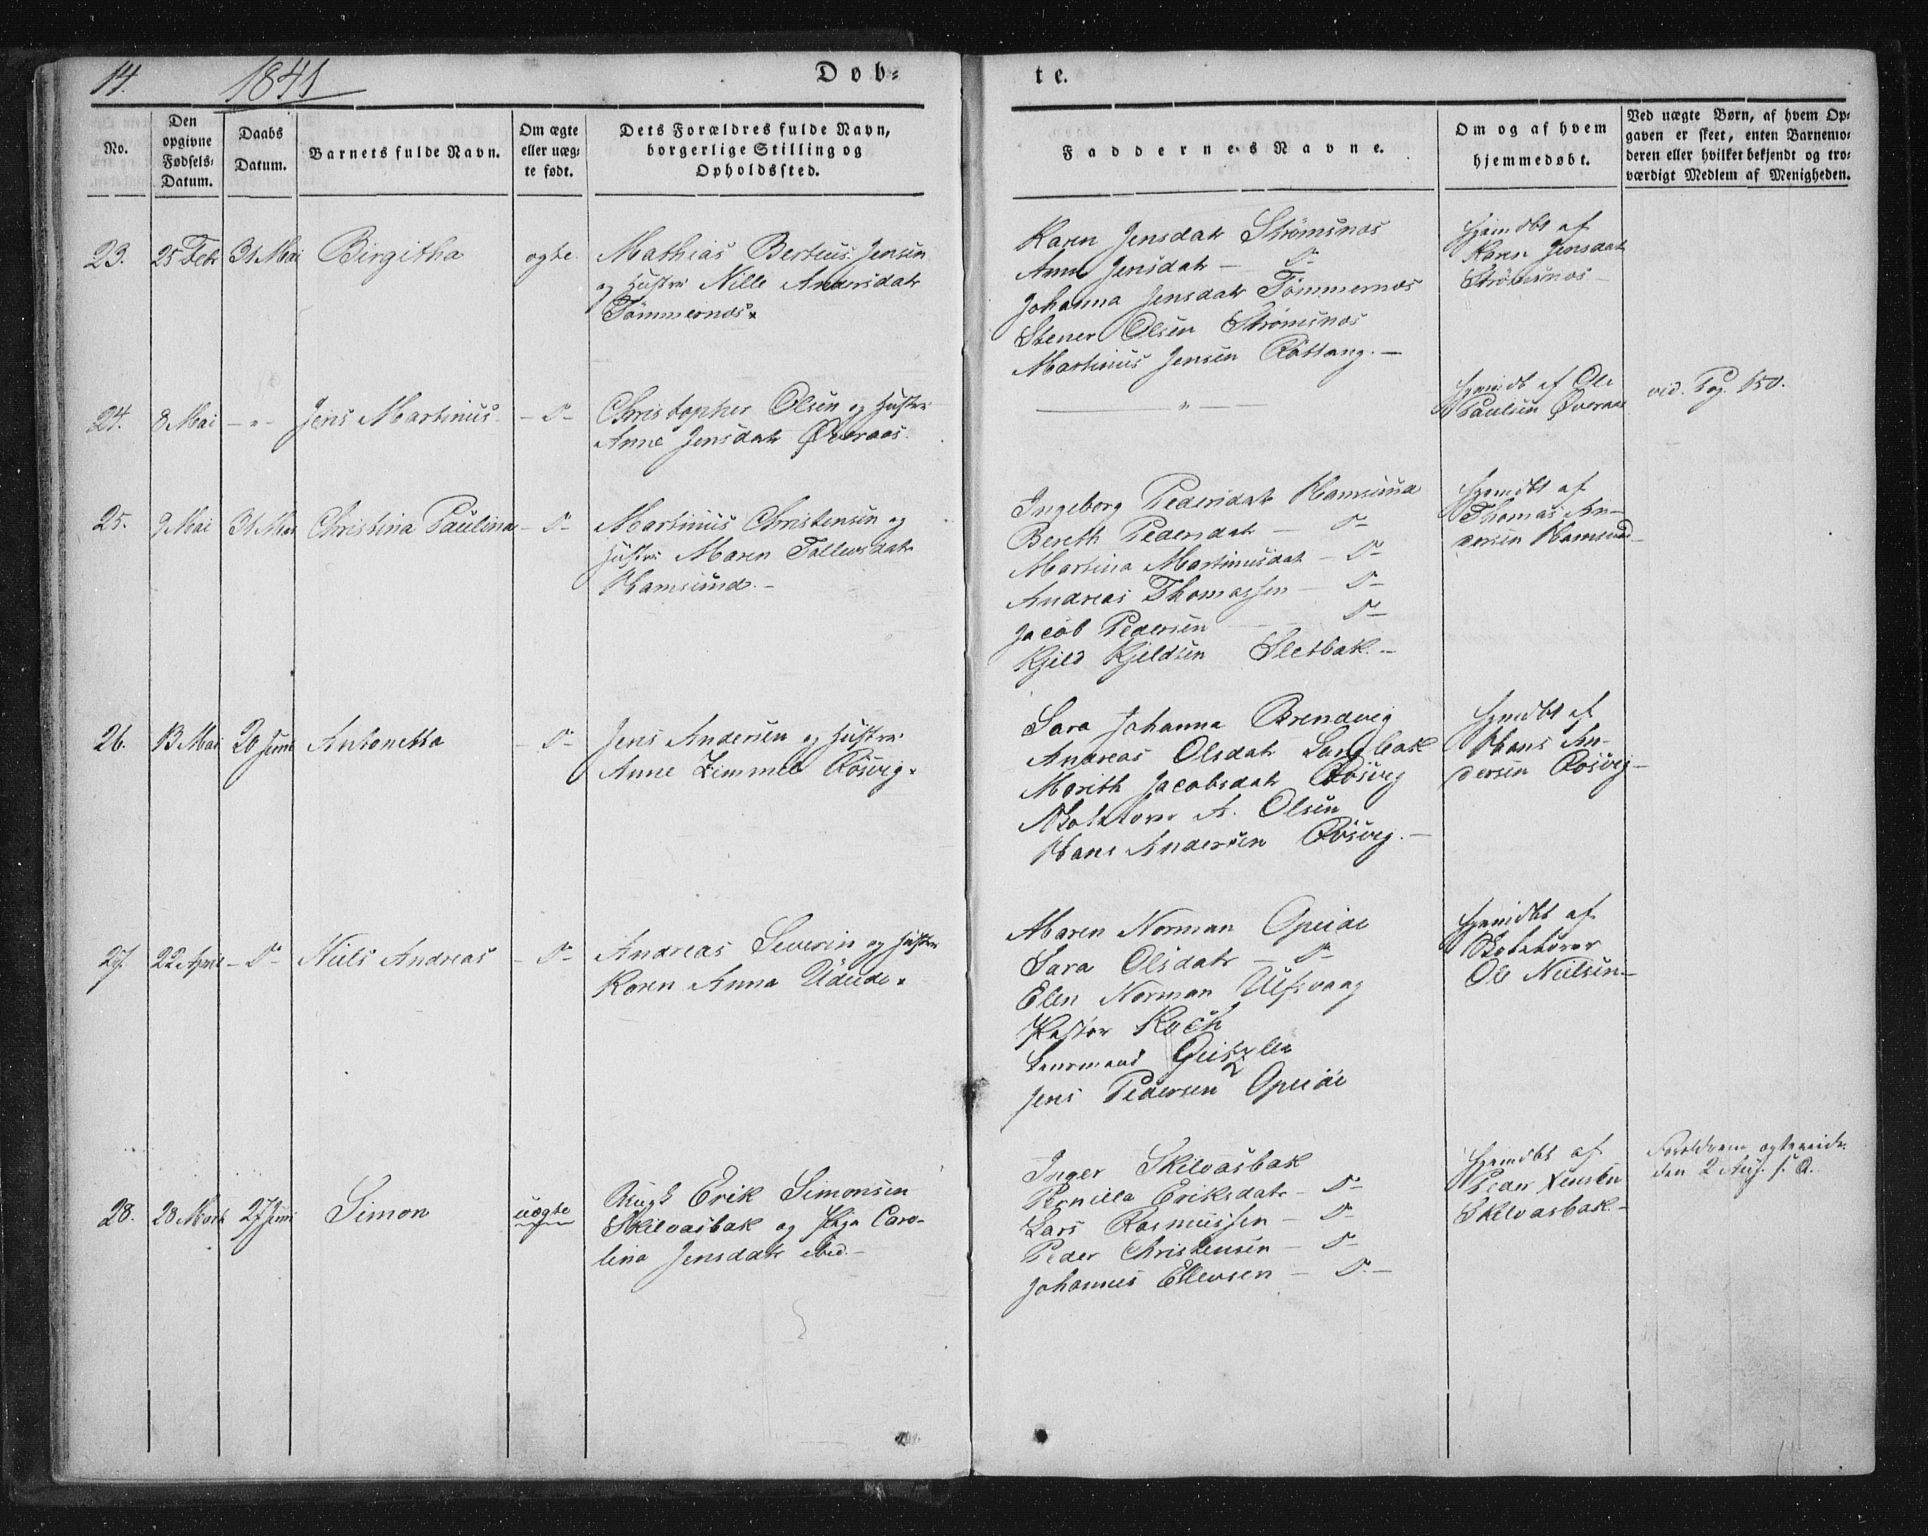 14.
1841
Døb-
te.
No.
Den opgivne Fødsels-Datum.
Daabs Datum.
Barnets fulde Navn.
Om ægte eller uæg-te født.
Dets Forældres fulde Navn, borgerlige Stilling og Opholdssted.
Faddernes Navne.
Om og af hvem hjemmedøbt.
Ved uægte Børn, af hvem Op-gaven er skeet, enten Barnemo-deren eller hvilket bekjendt og tro-værdigt Medlem af Menigheden.
23. 25 Febr 31 Mai Birgitha ægte.
Mathias Berteus Jensen
og Hustru Nille Andersdatr
Tømmernæs.
Karen Jensdatr Strømsnæs
Anne Jensdatr — D—
Johanna Jensdatr Tømmernæs
Stener Olsen Strømsnæs
Martinus Jensen Røttang.—
Hjemdbt af
Karen Jensdatr
Strømsnæs—
24. 8 Mai —"— Jens Martinus. —D—
Christopher Olsen og Hustru
Anne Jensdatr Øveraas.
— " —
Hjemdb af Ole
Paulsen Øveraas
vid. Pag. 150.
25. 9 Mai 31 Mai Christina Paulina —D—
Martinus Christensen og
Hustru Maren Tollevsdatr
Hamsund.—
Ingeborg Pedersdatr Hamsund
Bereth Pedersdatr — D—
Martina Martinusdatr — D—
Andreas Thomassen — D—
Jacob Pedersen — D—
Kjeld Kjeldsen Sletbak.—
Hjemdbt af
Thomas An-
dersen Hamsund—
26. 13 Mai 20 Juni Antonetta —D—
Jens Andersen og Hustru
Anne Zimmel Røsvig.
Sara Johanna Brendvig
Andreas Olsdatr Langbak
Marith Jacobsdatr Røsvig
A. Olsen
Hans Andersen Røsvig.—
Hjemdbt af
Hans An-
dersen Røsvig—
27. 22 April —D— Niels Andreas —D—
Andreas Severin og Hustru
Karen Anna
Maren Norman Opeide
Sara Olsdatr — D—
Elen Norman Ulfsvaag
Pastor Koch
Lensmand
Jens Pedersen Opeide
Hjemdbt af
Ole Nielsen—
28. 28 Marts 27 Juni Simon uægte
Erik Simonsen
Skilvasbak og Pige Caro-
lina Jensdatr ibid.—
Inger Skilvasbak
Pernilla Eriksdatr — D—
Lars Rasmussen — D—
Peder Christensen — D—
Johannes Ellevsen — D.—
Hjemdbt af
Peder Jensen
Skilvasbak—
Forældrene ægteviede
den 2 Aug. s. A.